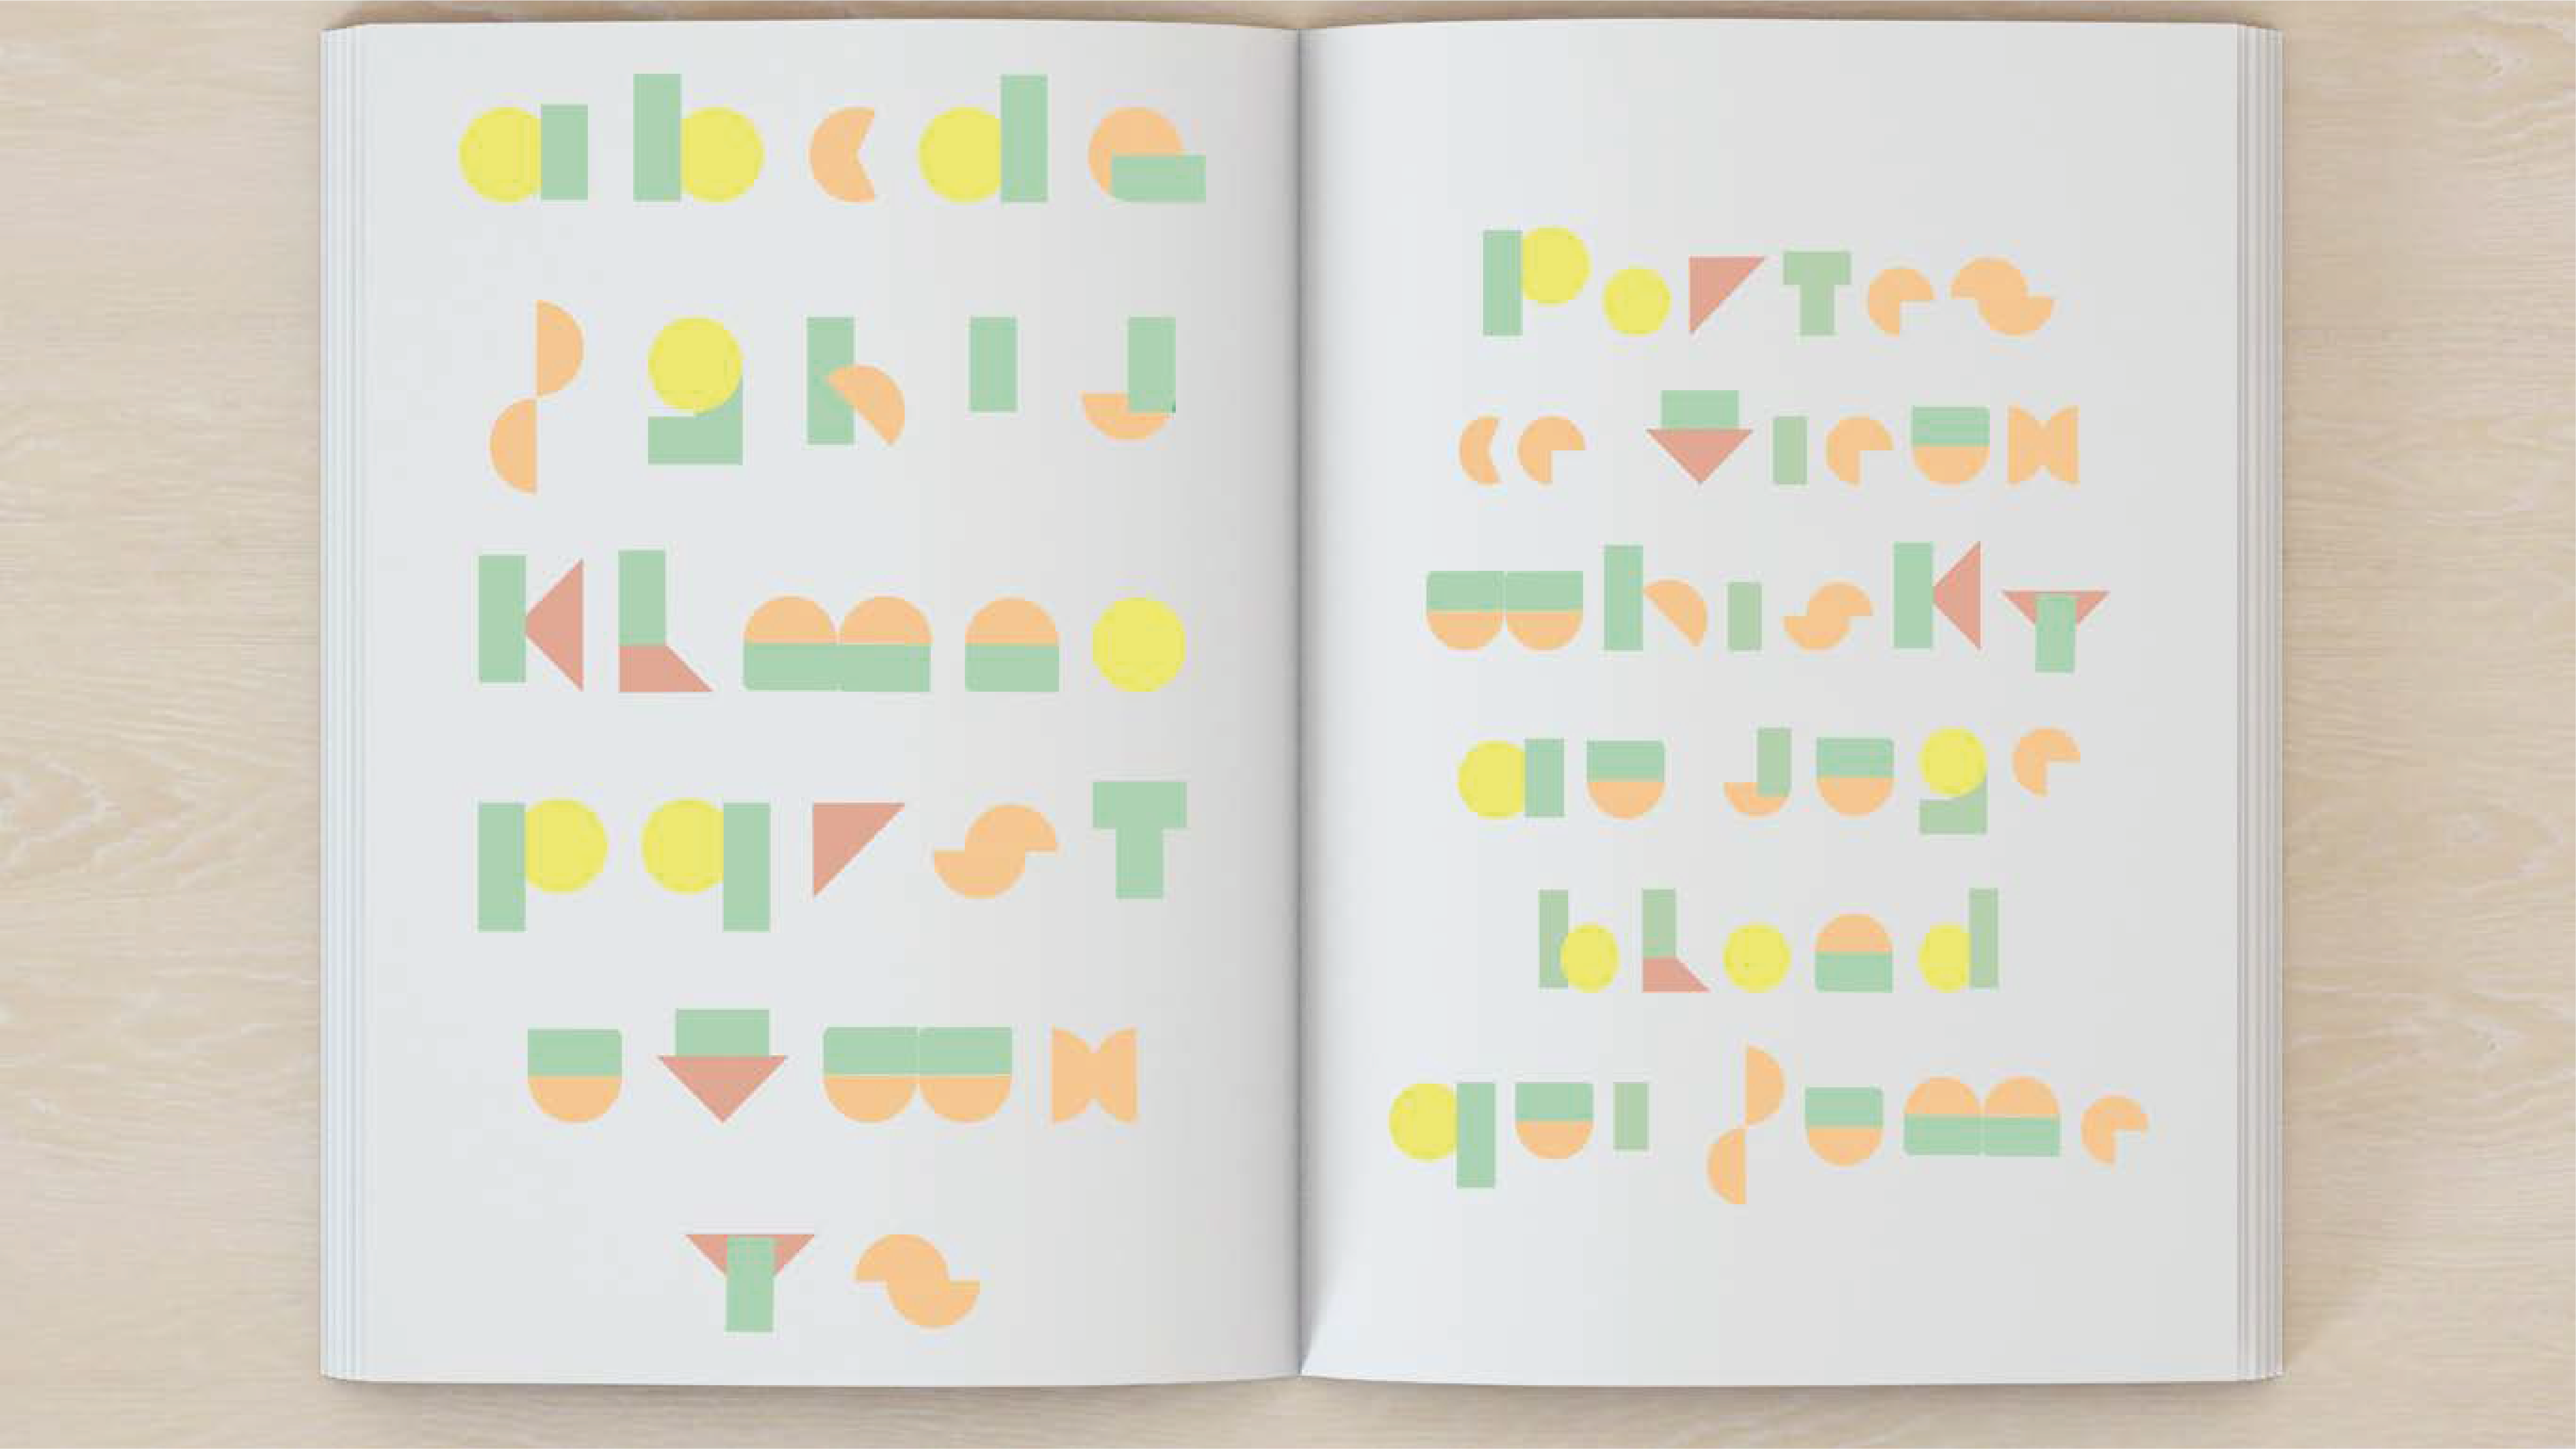 a b c d e
f g h i j
k l m n o
p q r s t
u v w x
y z
Portez
ce vieux
whisky
au juge
blond
qui fume